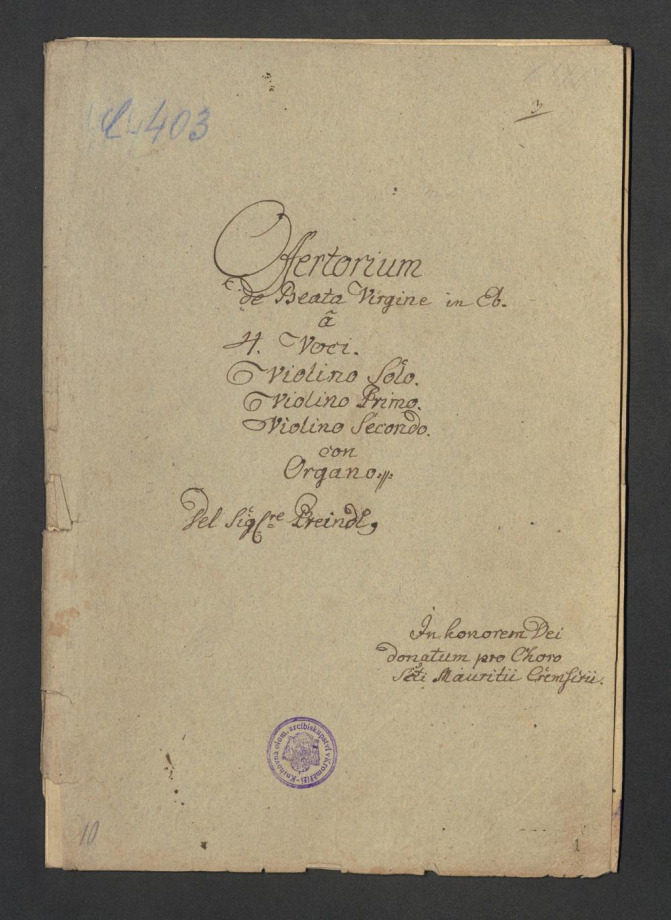 C 4403
Offertorium
de Beata Virgine in Eb.
â
4. Voci.
Violino Solo.
Violino Primo.
Violino Secondo.
con
Organo
Del Sig:re Preindl,
In honorem Dei
donatum pro Choro
Scti Mauritii Cremsirii.
Knihovna olom. arcibiskupství v Kroměříži
10
1